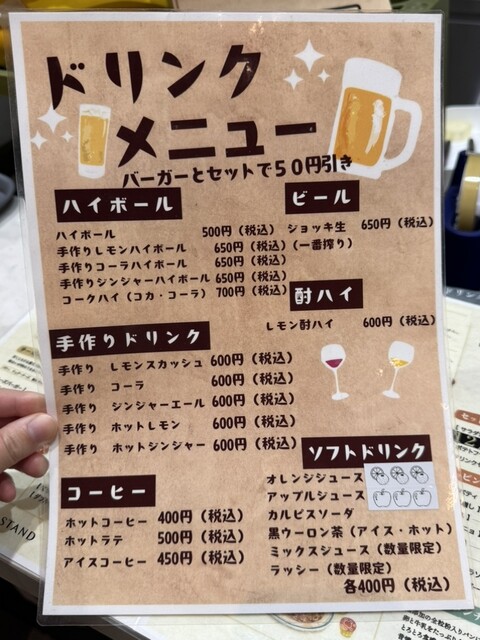 ドリンク
メニュー
バーガーとセットで50円引き
ハイボール
ハイボール 500円（税込）
手作りレモンハイボール 650円（税込）
手作りコーラハイボール 650円（税込）
手作りジンジャーハイボール 650円（税込）
コークハイ（コカ・コーラ） 700円（税込）
ビール
ジョッキ生 650円（税込）
（一番搾り）
酎ハイ
レモン酎ハイ 600円（税込）
手作りドリンク
手作り レモンスカッシュ 600円（税込）
手作り コーラ 600円（税込）
手作り ジンジャーエール 600円（税込）
手作り ホットレモン 600円（税込）
手作り ホットジンジャー 600円（税込）
コーヒー
ホットコーヒー 400円（税込）
ホットラテ 500円（税込）
アイスコーヒー 450円（税込）
ソフトドリンク
オレンジジュース
アップルジュース
カルピスソーダ
黒ウーロン茶（アイス・ホット）
ミックスジュース（数量限定）
ラッシー（数量限定）
各400円（税込）
STAND